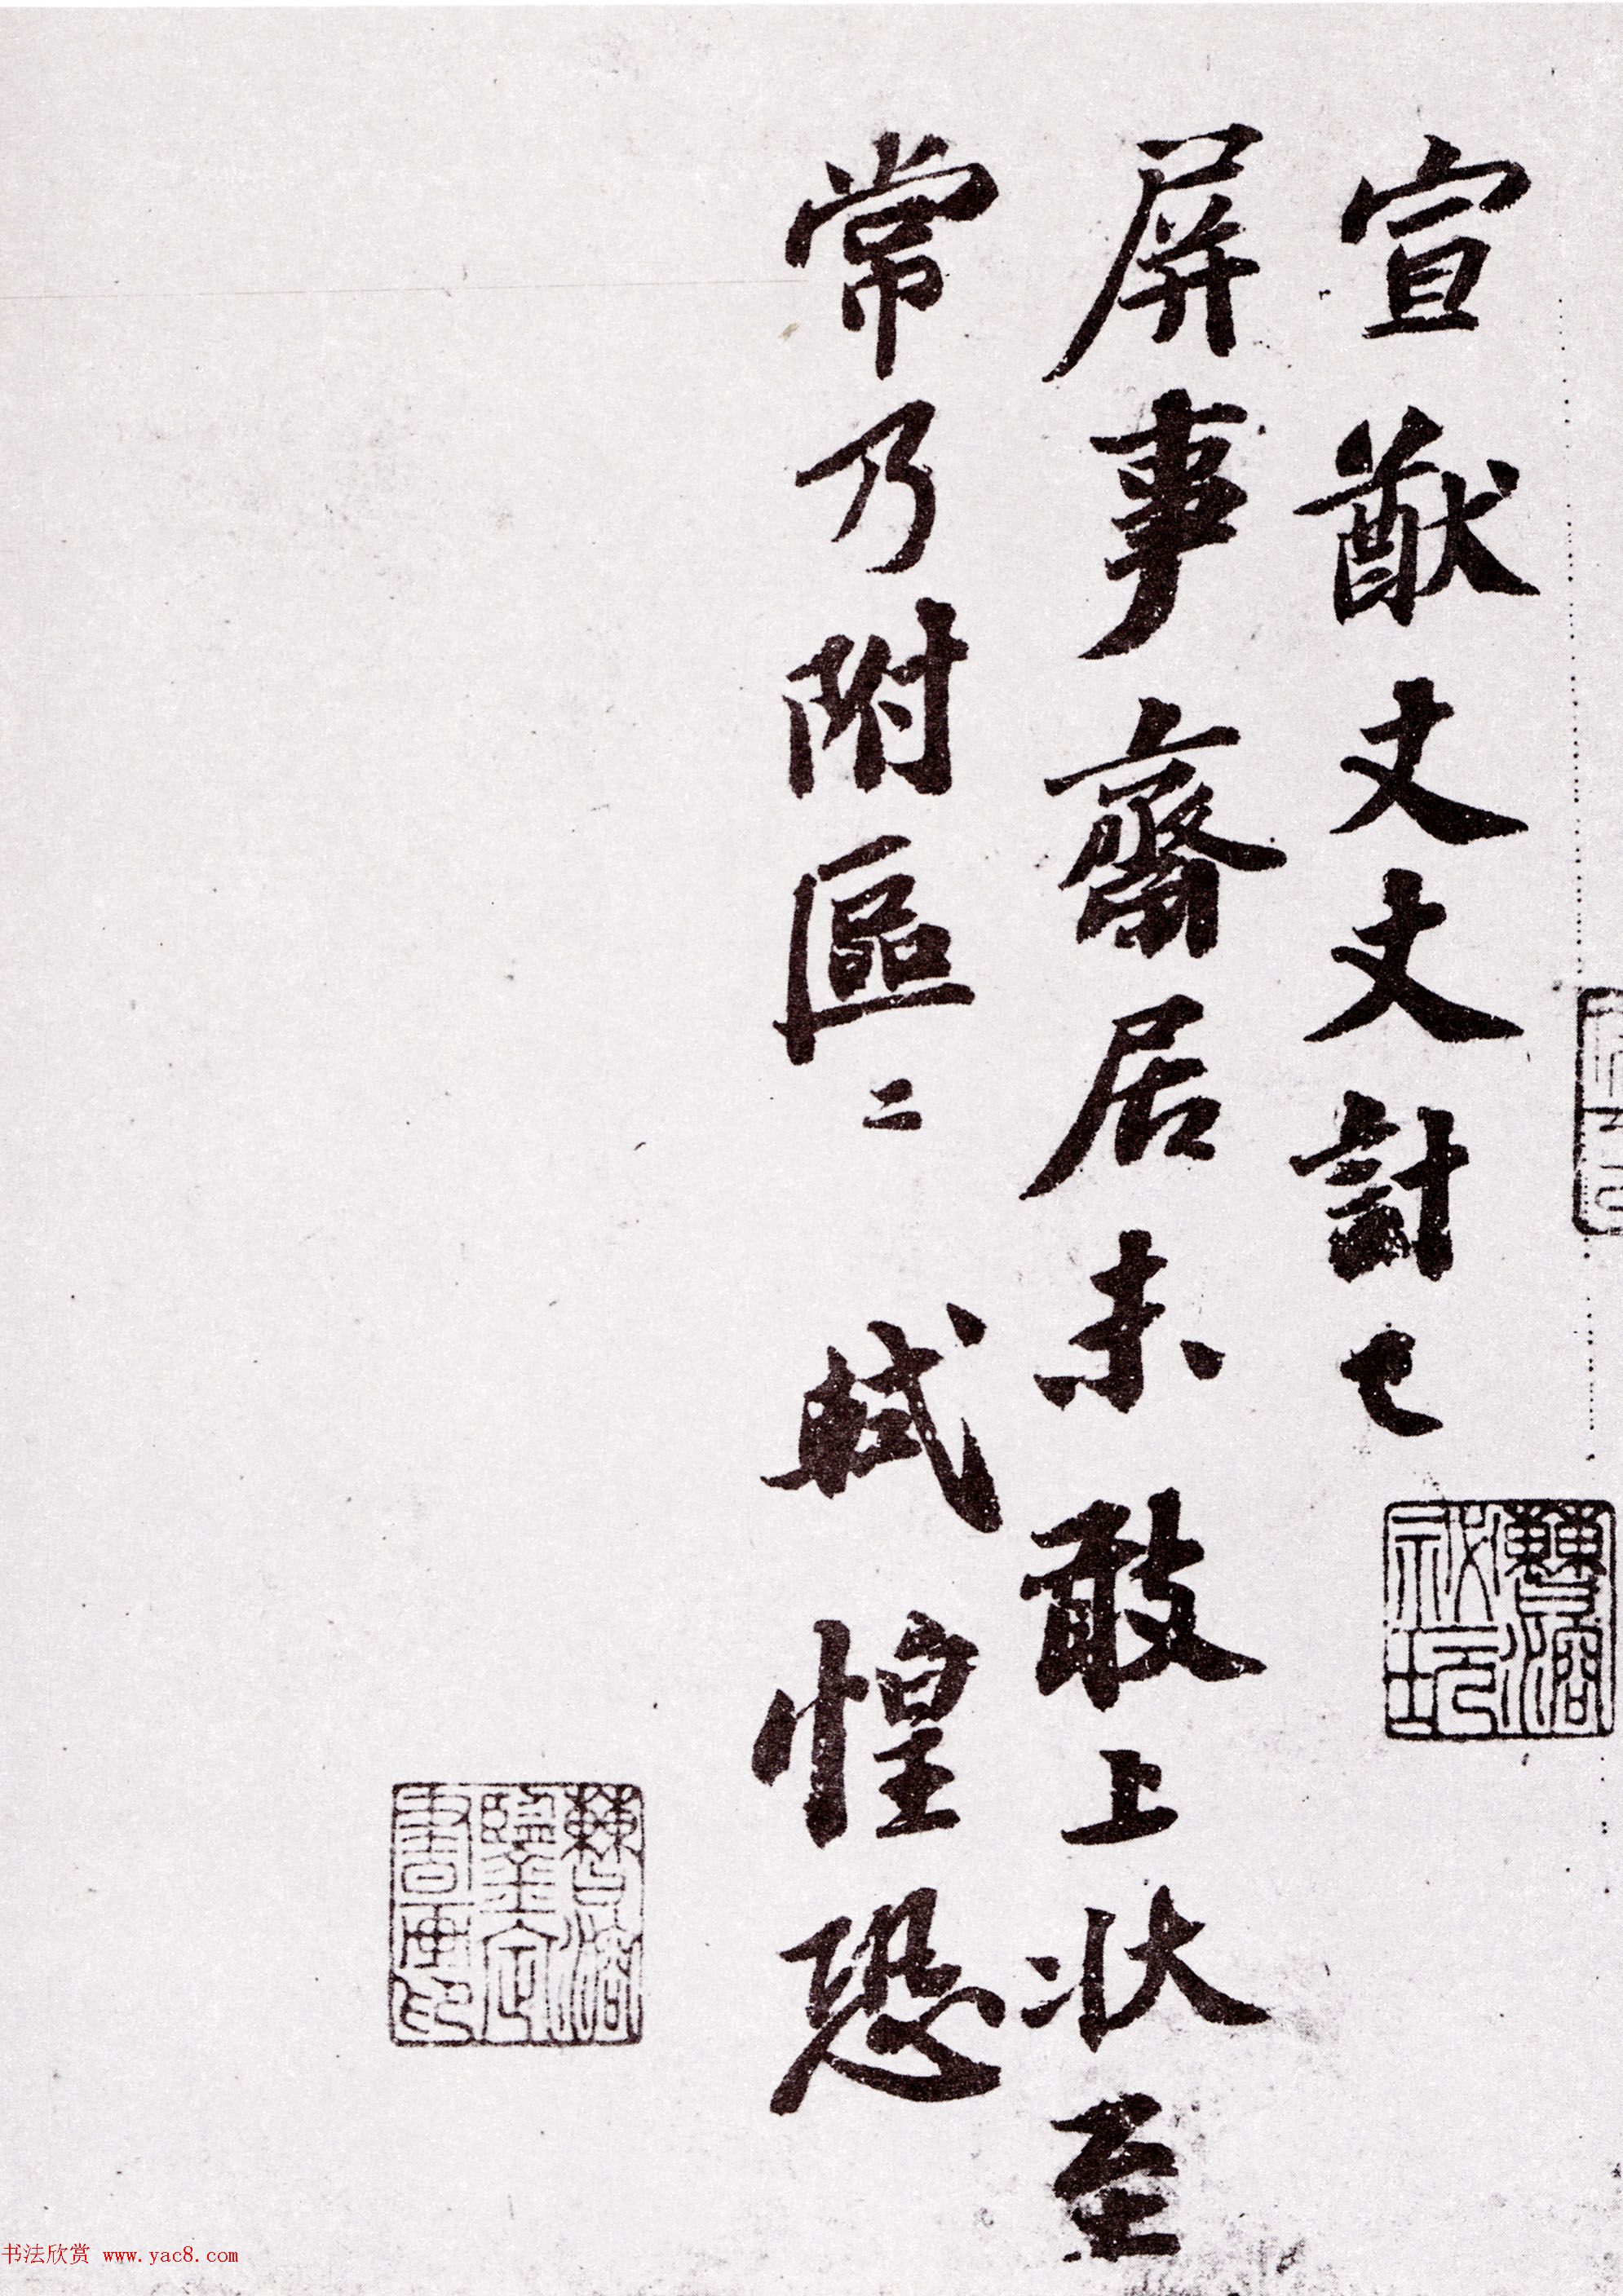 宣猷丈丈計已
屏事齋居未敢上狀至
常乃附區二 軾惶恐
書法欣赏 www.yac8.com